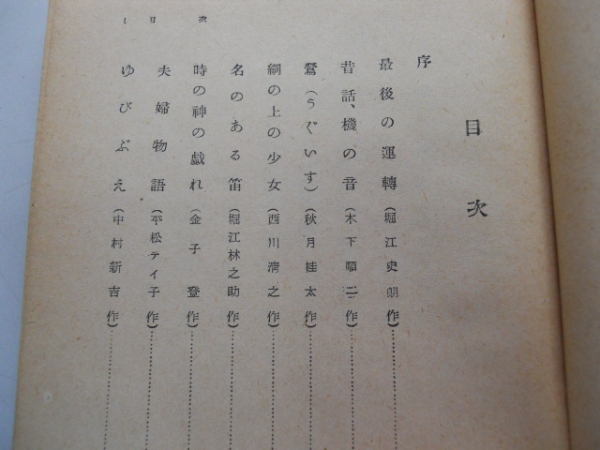 目次
序
最後の運轉(堀江史朗作)
昔話、機の音(木下順二作)
鶯(うぐいす)(秋月桂太作)
綱の上の少女(西川清之作)
名のある笛(堀江林之助作)
時の神の戯れ(金子登作)
夫婦物語(平松テイ子作)
ゆびぶえ(中村新吉作)
目次
1